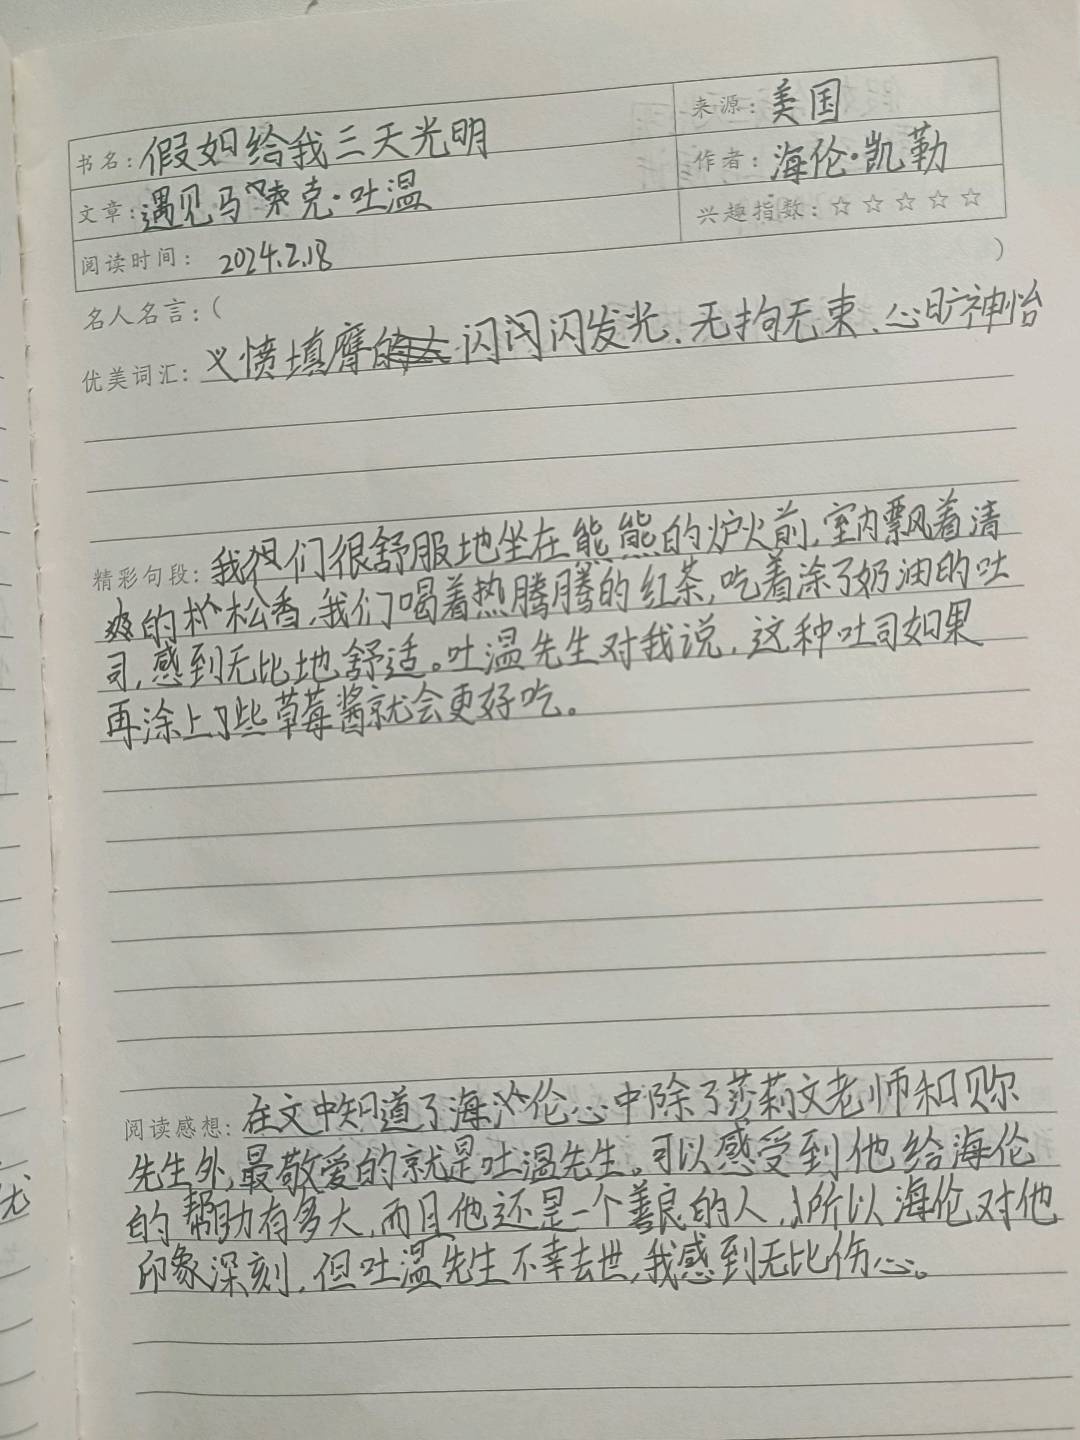 书名：假如给我三天光明
来源：美国
文章：遇见马克·吐温
作者：海伦·凯勒
阅读时间：2024.2.18
兴趣指数：☆☆☆☆☆
名人名言：（ ）
优美词汇：义愤填膺 闪闪发光、无拘无束、心旷神怡
精彩句段：我们很舒服地坐在熊熊的炉火前，室内飘着清
爽的松香，我们喝着热腾腾的红茶，吃着涂了奶油的吐
司，感到无比地舒适。吐温先生对我说，这种吐司如果
再涂上些草莓酱就会更好吃。
阅读感想：在文中知道了海伦心中除了莎莉文老师和贝尔
先生外，最敬爱的就是吐温先生。可以感受到他给海伦
的帮助有多大，而且他还是一个善良的人，所以海伦对他
印象深刻，但吐温先生不幸去世，我感到无比伤心。